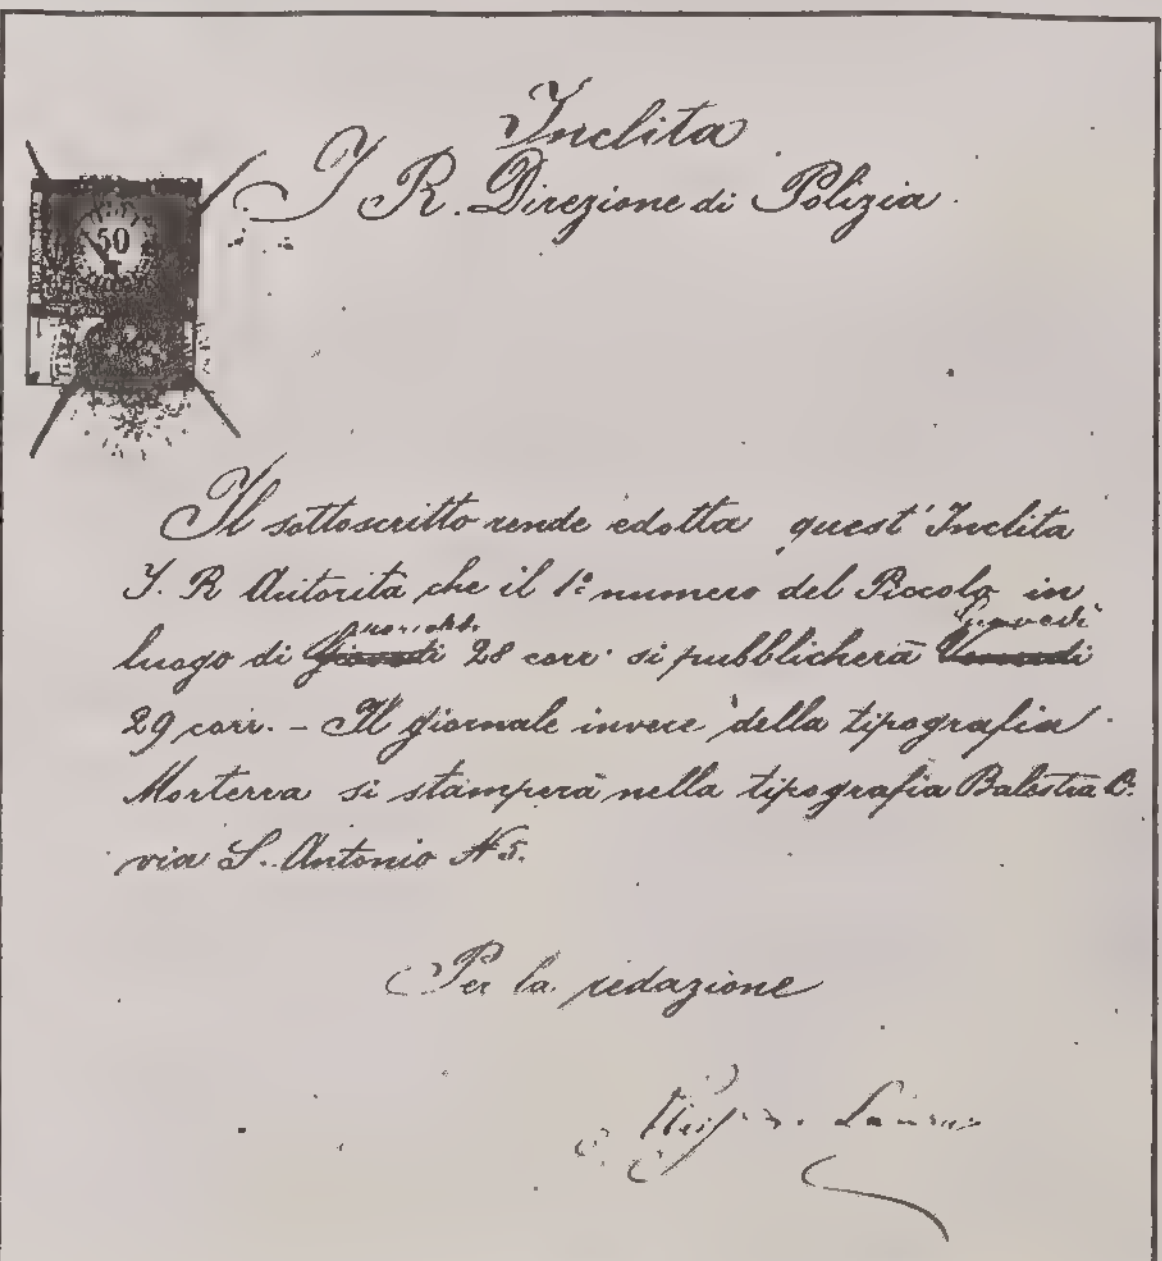 Inclita
I R. Direzione di Polizia.
50
Il sottoscritto rende edotta quest' Inclita
I. R Autorità che il 1º numero del Piccolo in
luogo di Giovedi 28 corr. si pubblicherà Giovedì
29 corr. - Il giornale invece della tipografia
Morterra si stamperà nella tipografia Balestra C.
via S. Antonio N 5.
Per la redazione